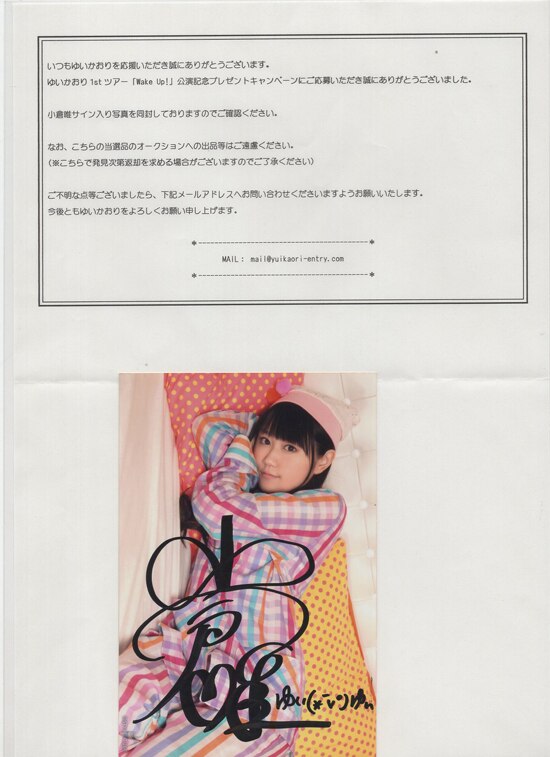 いつもゆいかおりを応援いただき誠にありがとうございます。
ゆいかおり1stツアー「Wake Up!」公演記念プレゼントキャンペーンにご応募いただき誠にありがとうございました。
小倉唯サイン入り写真を同封しておりますのでご確認ください。
なお、こちらの当選品のオークションへの出品等はご遠慮ください。
(※こちらで発見次第返却を求める場合がございますのでご了承ください)
ご不明な点等ございましたら、下記メールアドレスへお問い合わせくださいますようお願いいたします。
今後ともゆいかおりをよろしくお願い申し上げます。
*----------------------------------------*
MAIL: mail@yuikaori-entry.com
*----------------------------------------*
小倉唯
ゆい(*ˊᵕˋ)ゆい